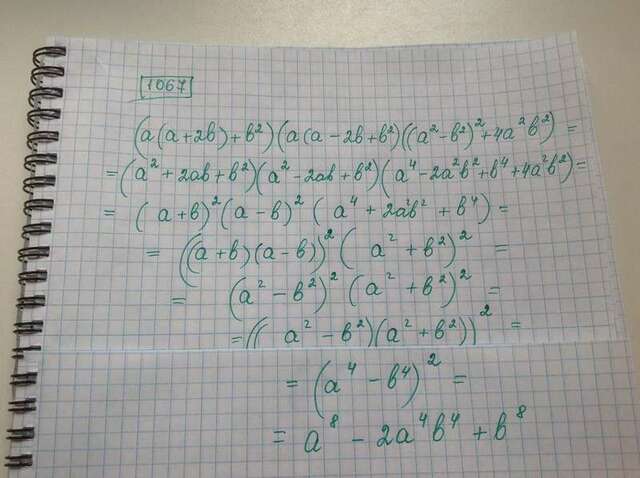 1067
(a(a+2b)+b²)(a(a-2b+b²)((a²-b²)²+4a²b²)=
=(a²+2ab+b²)(a²-2ab+b²)(a⁴-2a²b²+b⁴+4a²b²)=
= (a+b)²(a-b)² (a⁴+2a²b²+b⁴)=
= ((a+b)(a-b))² (a²+b²)² =
= (a²-b²)² (a²+b²)² =
=((a²-b²)(a²+b²))² =
= (a⁴-b⁴)² =
= a⁸-2a⁴b⁴+b⁸